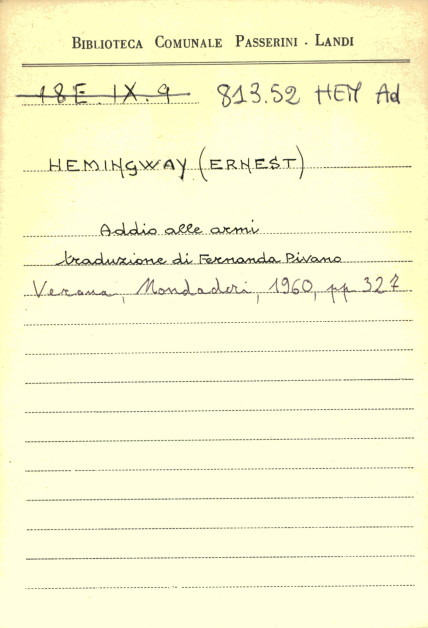 BIBLIOTECA COMUNALE PASSERINI - LANDI
18E. IX. 9 813.52 HEM Ad
HEMINGWAY (ERNEST)
Addio alle armi
traduzione di Fernanda Pivano
Verona, Mondadori, 1960, pp 327